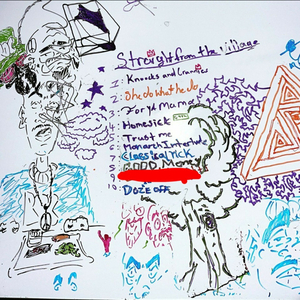 Straight from the village
1: Knocks and Crannies
2: She do what he do
3: For Ya Mama
4: Homesick
5: Trust me
6: Monarch Interlude
7: Classical Yick
10 Doze off